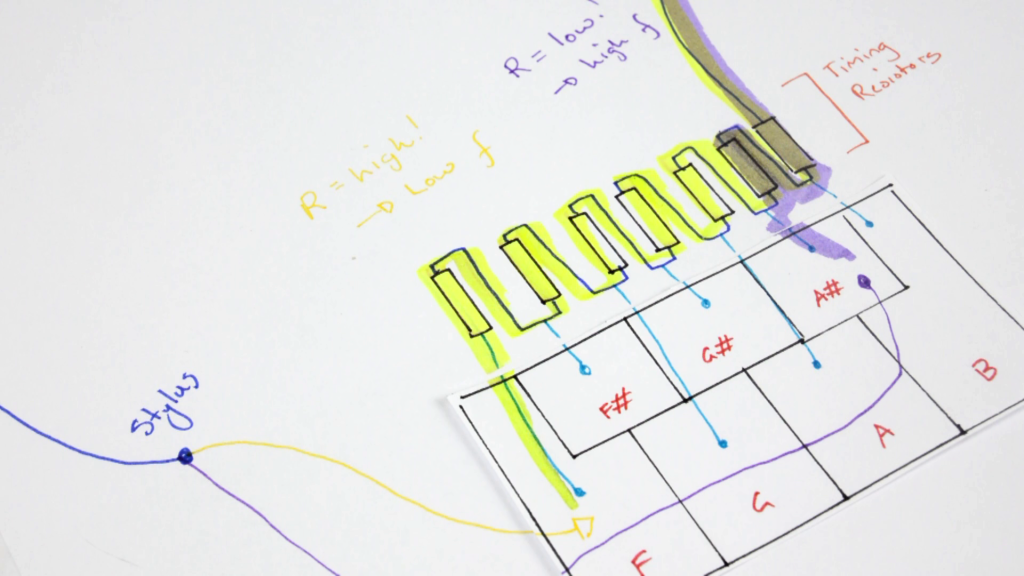 R = low!
→ high f
Timing
Resistors
R = high!
→ Low f
Stylus
A#
G#
F#
B
A
G
F